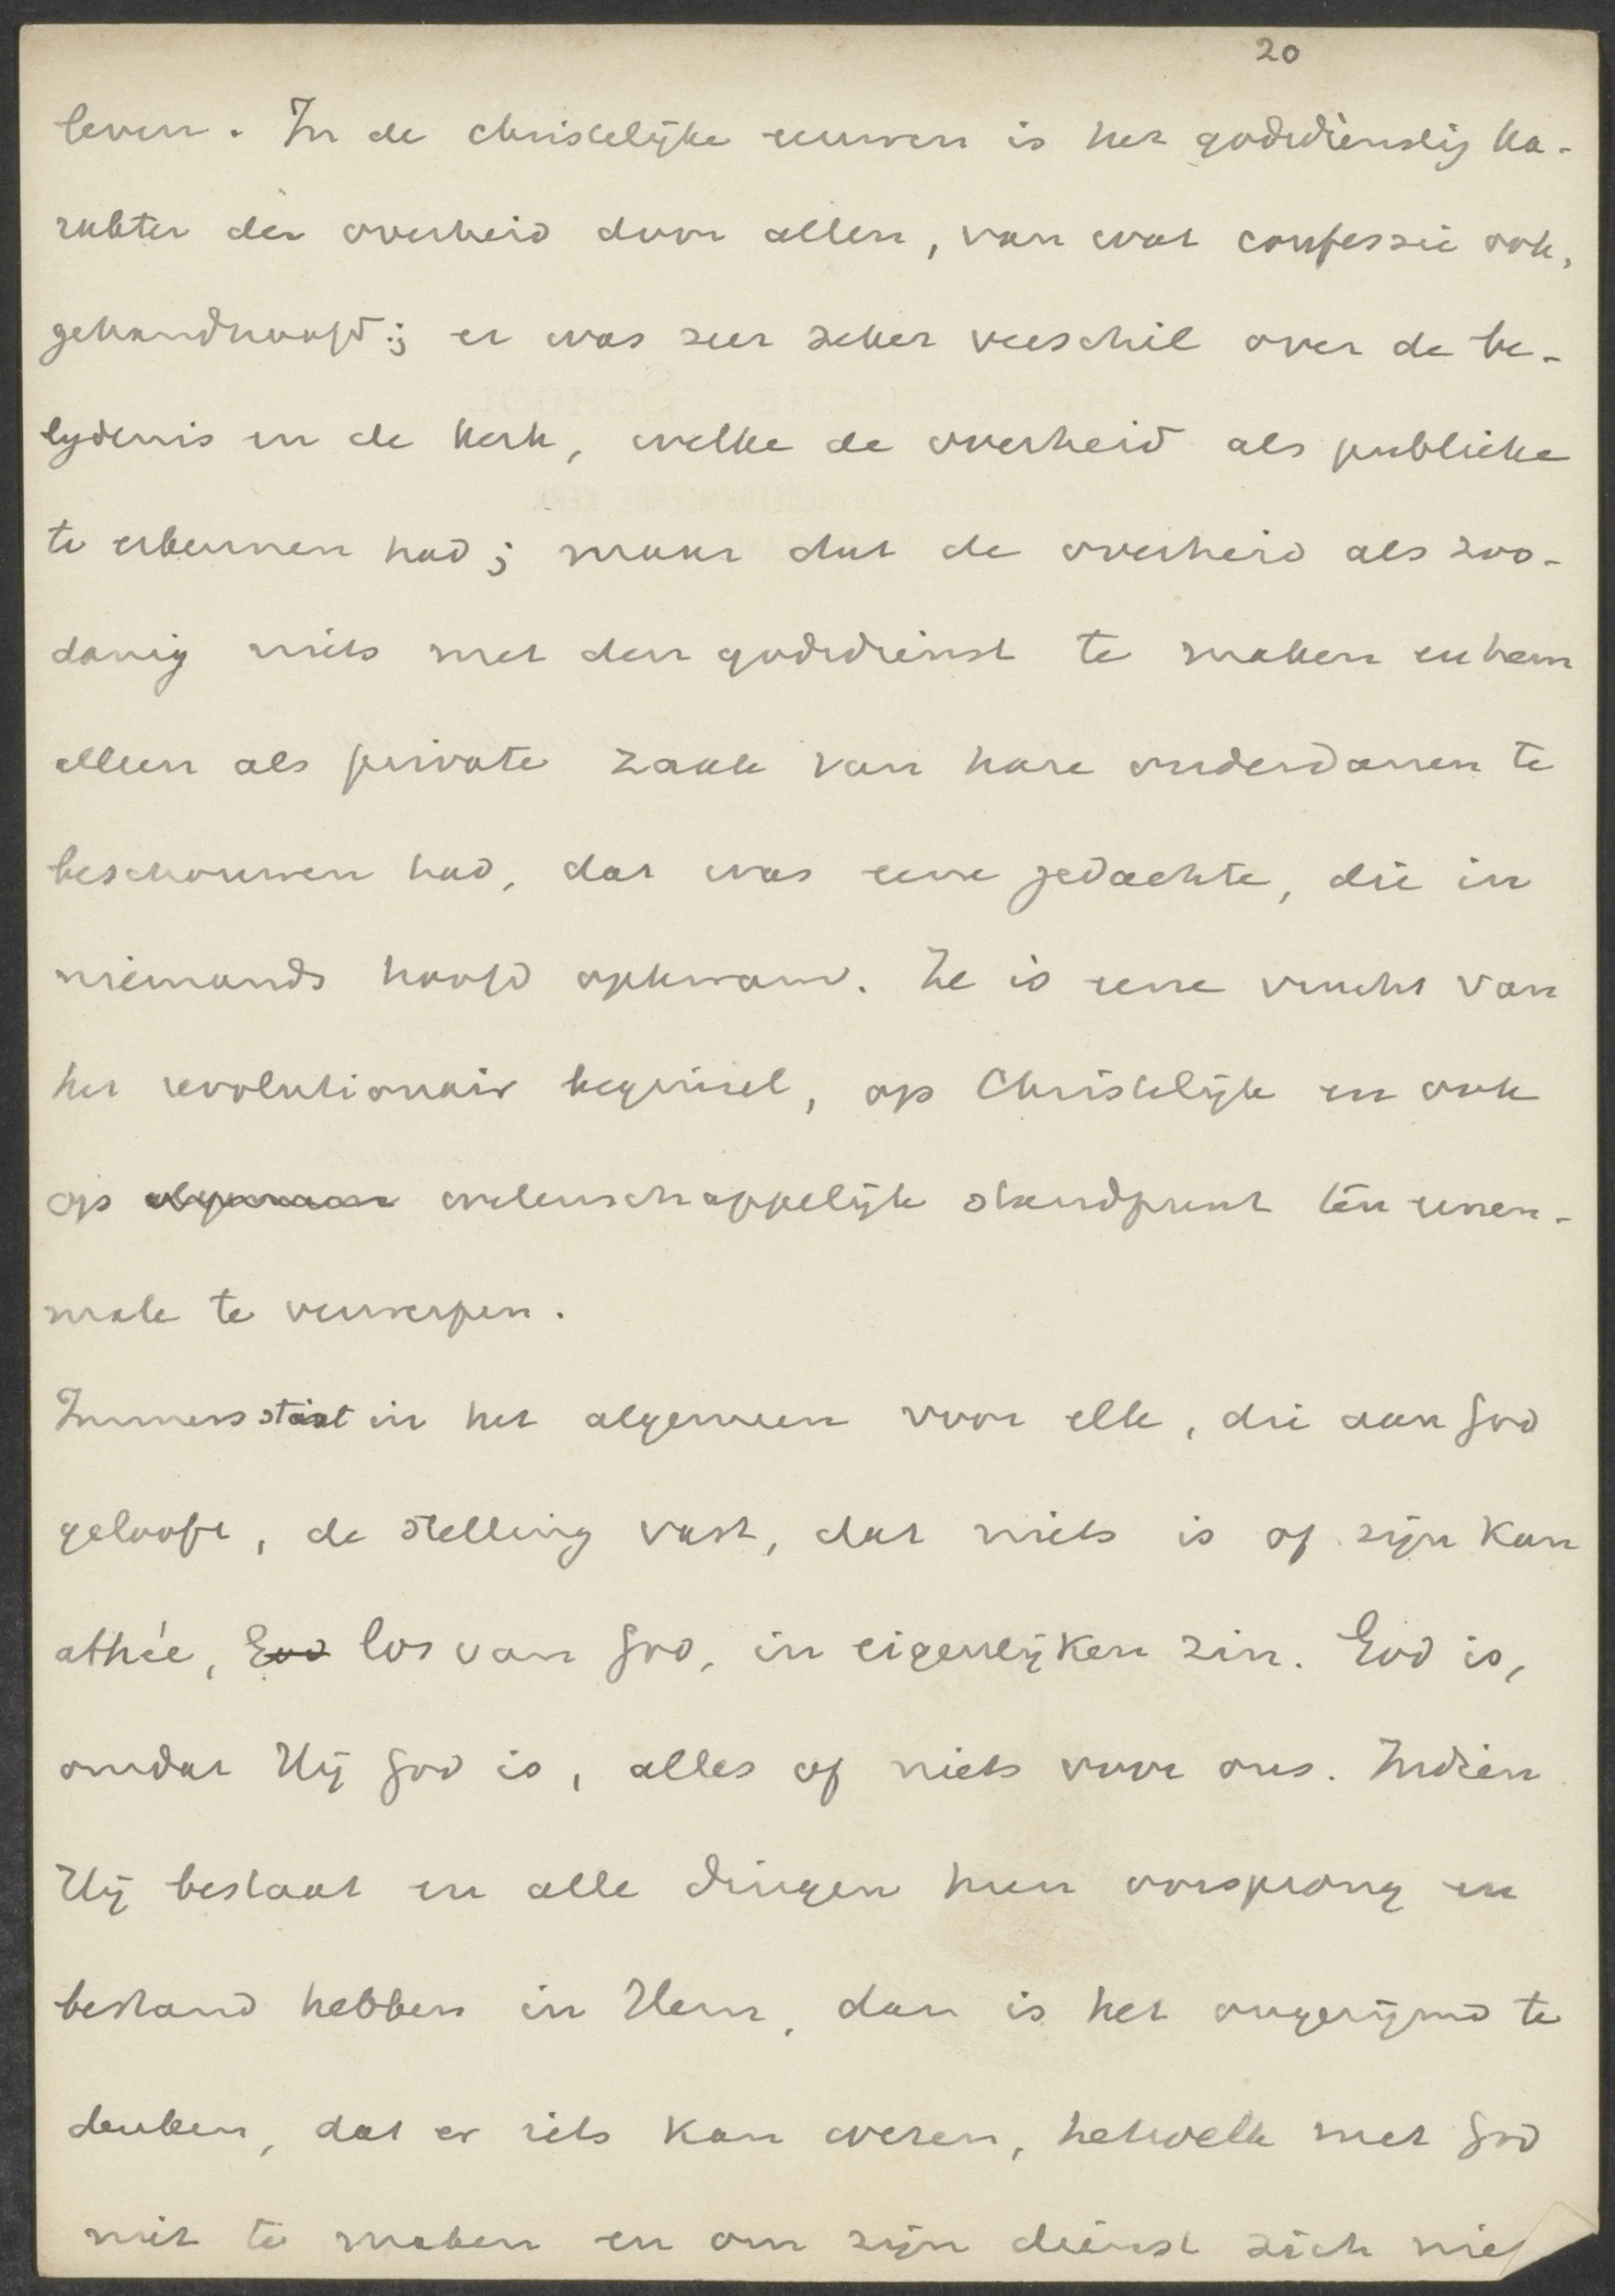 20
leven. In de christelijke eeuwen is het godsdienstig ka-
rakter der overheid door allen, van wat confessie ook,
gehandhaafd; er was zeer zeker verschil over de be-
lijdenis en de kerk, welke de overheid als publieke
te erkennen had; maar dat de overheid als zoo-
danig niets met den godsdienst te maken en hem
alleen als private zaak van hare onderdanen te
beschouwen had, dat was eene gedachte, die in
niemands hoofd opkwam. Ze is eene vrucht van
het revolutionair beginsel, op Christelijk en ook
op algemeen wetenschappelijk standpunt ten eenen-
male te verwerpen.
Immers staat in het algemeen voor elk, die aan God
gelooft, de stelling vast, dat niets is of zijn kan
athée, God los van God, in eigenlijken zin. God is,
omdat Hij God is, alles of niets voor ons. Indien
Hij bestaat en alle dingen hun oorsprong en
bestand hebben in Hem, dan is het ongerijmd te
denken, dat er iets kan wezen, hetwelk met God
niet te maken en om zijn dienst zich niet